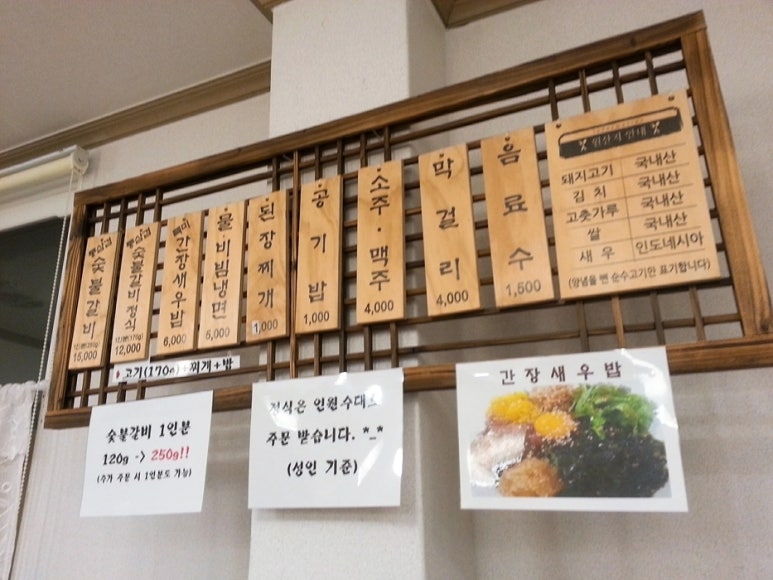 숯불갈비
15,000
숯불갈비정식
12,000
간장새우밥
6,000
물비빔냉면
6,000
된장찌개
1,000
공기밥
1,000
소주·맥주
4,000
막걸리
4,000
음료수
1,500
원산지안내
돼지고기 국내산
김치 국내산
고춧가루 국내산
쌀 국내산
새우 인도네시아
(양념을 뺀 순수고기만 표기합니다)
고기(170g)+찌개+밥
숯불갈비 1인분
120g -> 250g!!
(추가 주문 시 1인분도 가능)
정식은 인원수대로
주문 받습니다. *_*
(성인 기준)
간장새우밥